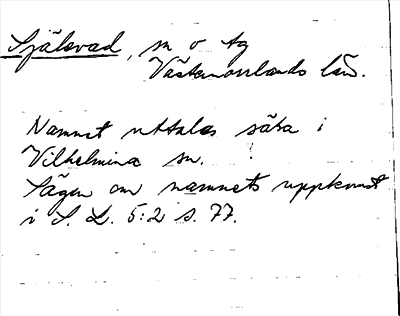 Själevad, sn o tg
Västernorrlands län.
Namnet uttalas säka i
Vilhelmina sn.
Sägen om namnets uppkomst
i S. L. 5:2 s. 77.